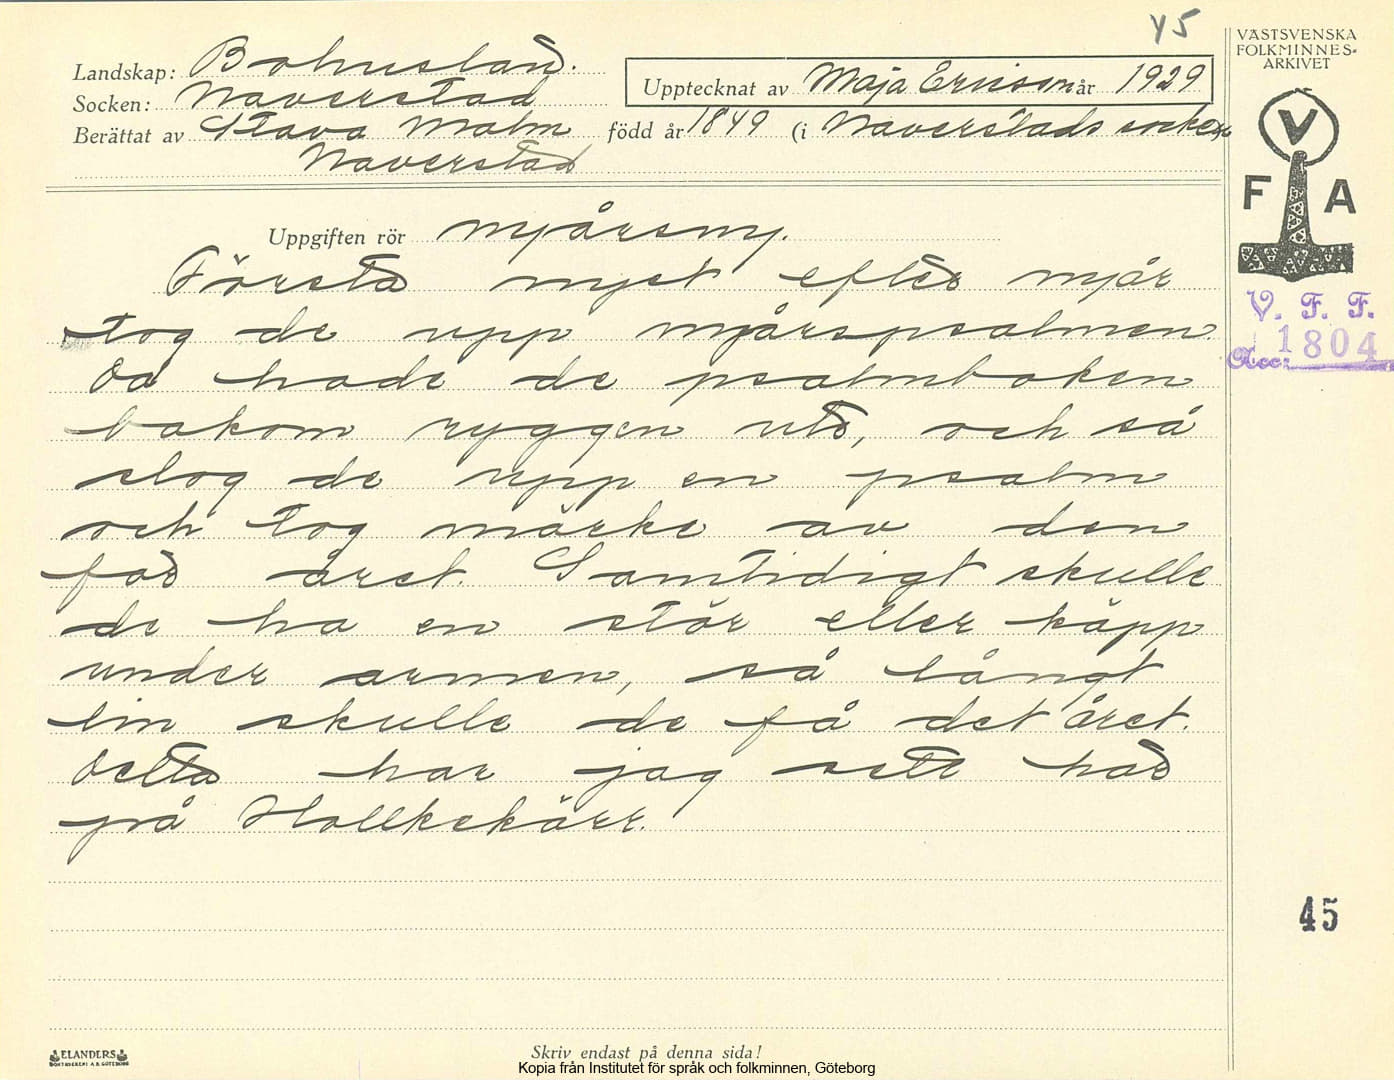 45
VÄSTSVENSKA
FOLKMINNES-
ARKIVET
Landskap: Bohuslän.
Socken: Naverstad
Upptecknat av Maja Ericson år 1929
Berättat av Stava Malm född år 1849 (i Naverstads socken
Naverstad
V
F A
Uppgiften rör nyårsny.
Första nyet efter nyår
V. F. F.
tog de upp nyårspsalmen.
Acc: 1804
Då hade de psalmboken
bakom ryggen ute, och så
slog de upp en psalm
och tog märke av den
för året. Samtidigt skulle
de ha en stör eller käpp
under armen, så långt
lin skulle de få det året.
Detta har jag sett här
på Hollkekärr.
45
Skriv endast på denna sida!
ELANDERS
BOKTRYCKERI A.B. GÖTEBORG
Kopia från Institutet för språk och folkminnen, Göteborg